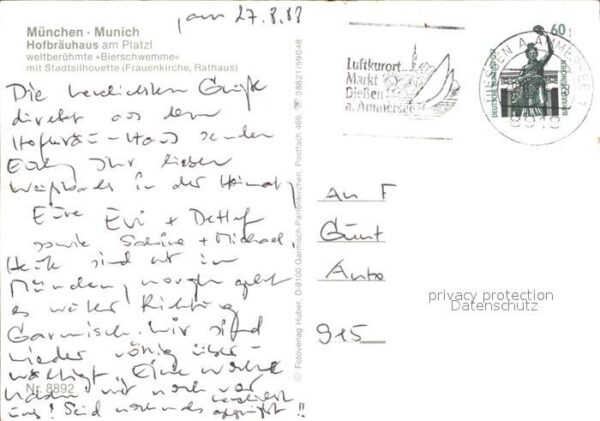 am 27.8.88
München · Munich
Hofbräuhaus am Platzl
weltberühmte »Bierschwemme«
mit Stadtsilhouette (Frauenkirche, Rathaus)
Die herzlichsten Grüße
direkt aus dem
Hofbräu-Haus senden
Euch, Ihr lieben
in der Heimat,
Eure Evi + Detlef
sowie Sabine + Michael.
Heute sind wir in
München, morgen geht
es weiter Richtung
Garmisch. Wir sind
wieder völlig über-
wältigt. Eine Woche
haben wir noch vor
uns! Seid nochmals herzlichst
gegrüßt!!
Nr. 8892
© Fotoverlag Huber, D-8100 Garmisch-Partenkirchen, Postfach 466, ☎ 08821/59048
Luftkurort
Markt
Dießen
a. Ammersee
DIESSEN A. AMMERSEE 1
8918
60
DEUTSCHE BUNDESPOST
BAVARIA MÜNCHEN
An F
Günt
Anto
915
privacy protection
Datenschutz